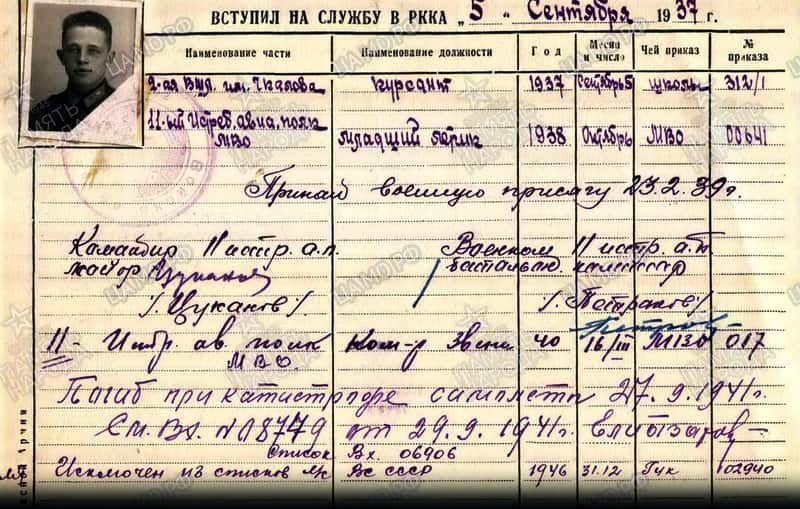 ВСТУПИЛ НА СЛУЖБУ В РККА „5" Сентября 1937 г.
Наименование части Наименование должности Год Месяц и число Чей приказ № приказа
2-ая ВШЛ им. Чкалова курсант 1937 Сентябрь 5 школы 312/1
11-ый Истреб. авиа. полк МВО младший летчик 1938 Октябрь МВО 00641
Принял военную присягу 23.2.39 г.
Командир 11 истр. а.п. Военком 11 истр. а.п.
майор батальон. комиссар
/Цуканов/ /Петраков/
11- Истр. ав. полк МВО Ком-р Звена 40 16/III МВО 017
Погиб при катастрофе самолета 27.9.1941г.
См. Вх. № 08779 от 29.9.1941г.
Список Вх. 06906
Исключен из списков ВС СССР 1946 31.12 Гук 02940
ЦАМО РФ
ПАМЯТЬ НАРОДА